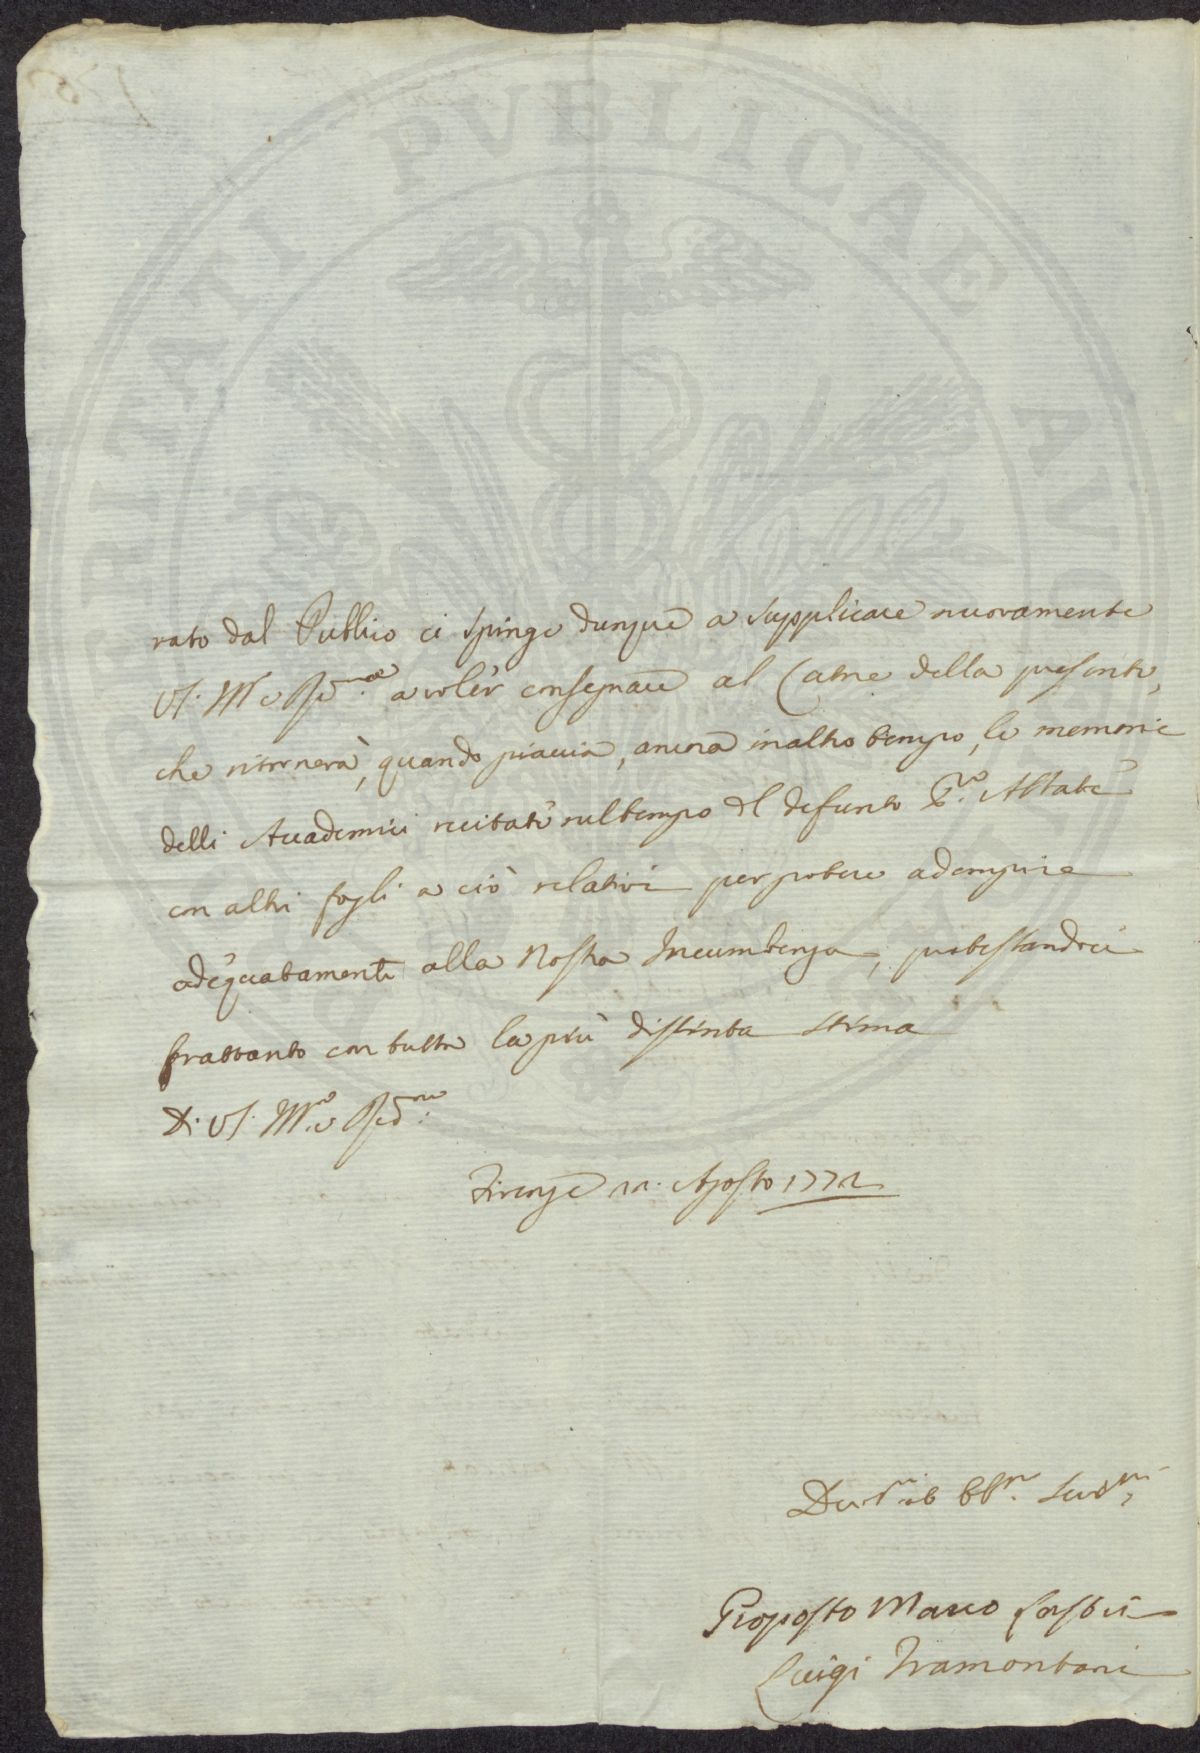 PROSPERITATI PUBLICAE AUGENDAE
rato dal Publico ci spinge dunque a supplicare nuovamente
VS. M e Rd.ma a voler consegnare al Latore della presente,
che ritornerà, quando piaccia, ancora in altro tempo, le memorie
delli Accademici recitate nel tempo del defunto Abbate
con altri fogli a ciò relativi per potere adempire
adeguatamente alla Nostra Incumbenza, protestandoci
frattanto con tutta la più distinta stima
Di VS. M.o e Rd.
Firenze 11. Agosto 1772
Proposto Marco Lastri
Luigi Tramontani